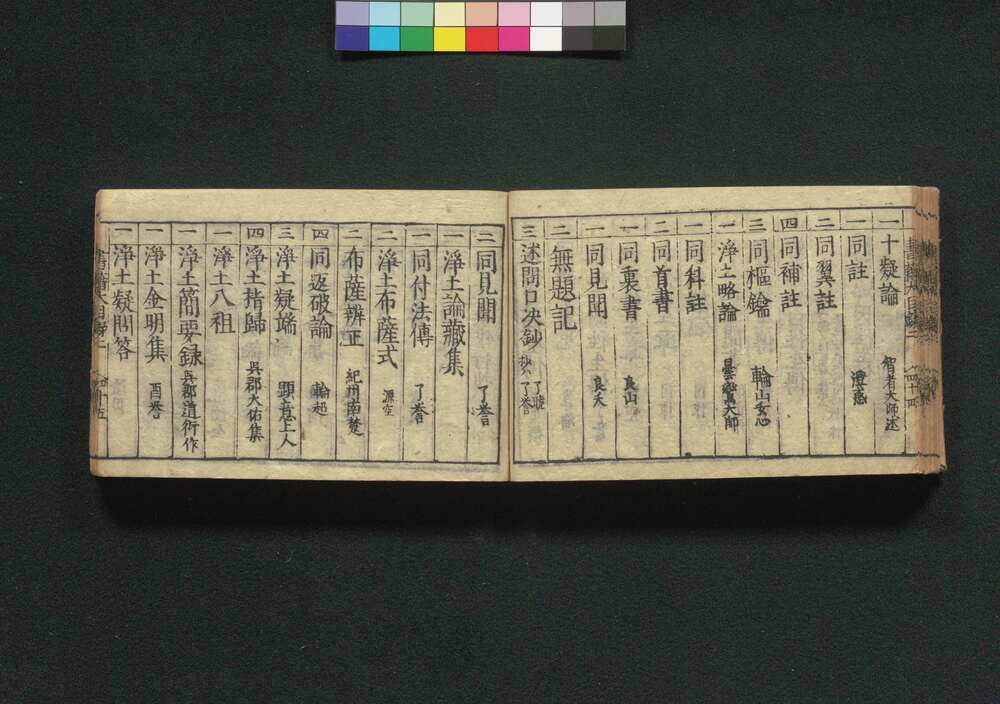 一 十疑論 智者大師述
一 同註 澄彧
二 同翼註
四 同補註
三 同樞鑰 輪山玄心
一 淨土略論 曇鸞大師
一 同科註
二 同首書
一 同裏書 良山
一 同見聞 良天
二 無題記
三 述聞口决鈔 了誉
二 同見聞 了誉
一 淨土論藏集
一 同付法傳 了誉
二 淨土布薩式 源空
二 布薩辨正 紀州南楚
四 同返破論 輪超
三 淨土疑端 顕意上人
四 淨土指歸 呉郡大佑集
一 淨土八祖
一 淨土簡要録 呉郡道衍作
一 淨土金明集 酉誉
一 淨土疑問答